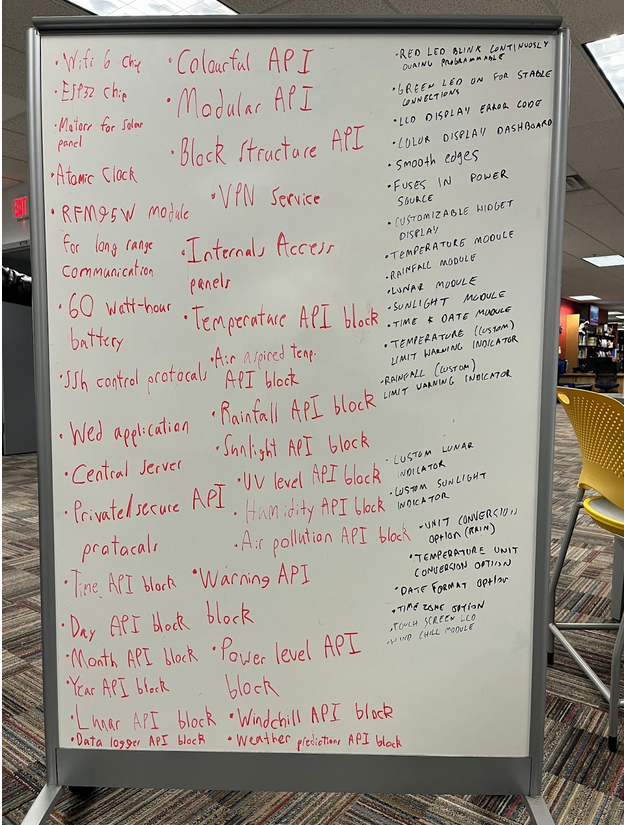 • Wifi 6 chip
• ESP32 chip
• Motorr for solar
panel
• Atomic Clock
• RFM95W module
for long range
communication
• 60 watt-hour
battery
• SSh control protocals
• Wed application
• Central server
• Private/secure API
protocals
• Time API block
• Day API block
• Month API block
• Year API block
• Lunar API block
• Data logger API block
• Colourful API
• Modular API
• Block Structure API
• VPN Service
• Internals Access
panels
• Temperature API block
• Air aspired temp.
API block
• Rainfall API block
• Sunlight API block
• UV level API block
• Humidity API block
• Air pollution API block
• Warning API
block
• Power level API
block
• Windchill API block
• Weather predictions API block
• RED LED BLINK CONTINUOSLY
DURING PROGRAMMABLE
• GREEN LED ON FOR STABLE
CONNECTIONS
• LCD DISPLAY ERROR CODE
• COLOR DISPLAY DASHBOARD
• Smooth edges
• FUSES IN POWER
SOURCE
• CUSTOMIZABLE WIDGET
DISPLAY
• TEMPERATURE MODULE
• RAINFALL MODULE
• LUNAR MODULE
• SUNLIGHT MODULE
• TIME & DATE MODULE
• TEMPERATURE (CUSTOM)
LIMIT WARNING INDICATOR
• RAINFALL (CUSTOM)
LIMIT WARNING INDICATOR
• CUSTOM LUNAR
INDICATOR
• CUSTOM SUNLIGHT
INDICATOR
• UNIT CONVERSION
OPTION (RAIN)
• TEMPERATURE UNIT
CONVERSION OPTION
• DATE FORMAT OPTION
• TIME ZONE OPTION
• TOUCH SCREEN LCD
• WIND CHILL MODULE
EXIT